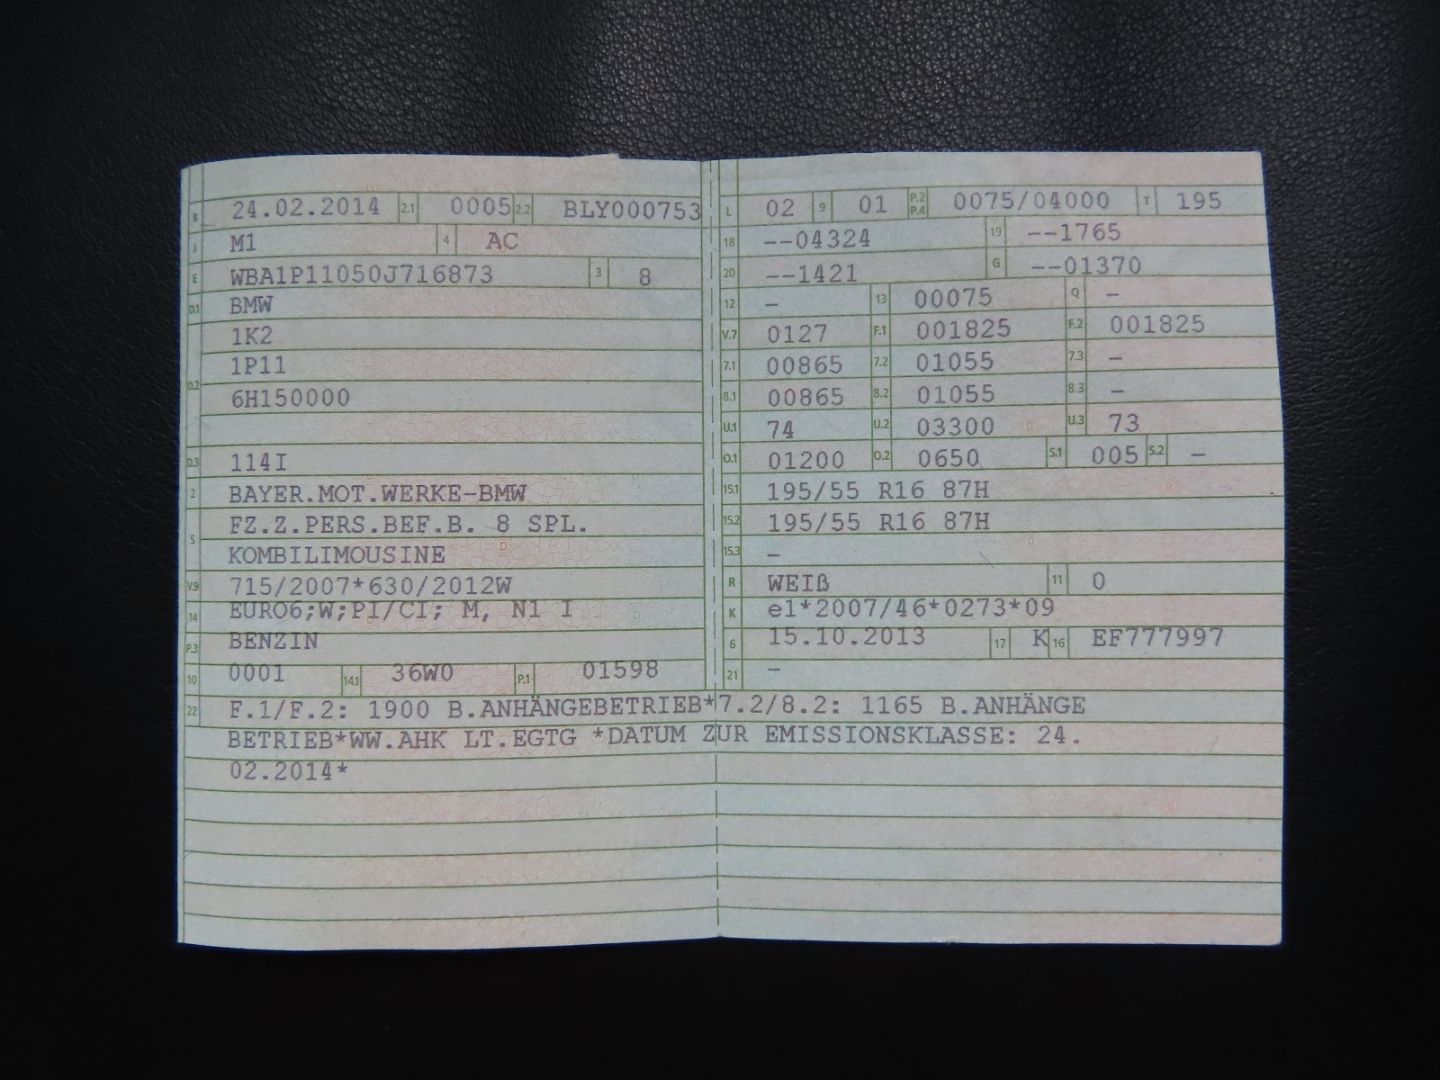 B 24.02.2014 2.1 0005 2.2 BLY000753
J M1 4 AC
E WBA1P11050J716873 3 8
D.1 BMW
1K2
1P11
D.2
6H150000
D.3 114I
2 BAYER.MOT.WERKE-BMW
FZ.Z.PERS.BEF.B. 8 SPL.
5
KOMBILIMOUSINE
V.9 715/2007*630/2012W
14 EURO6;W;PI/CI; M, N1 I
P.3 BENZIN
10 0001 14.1 36W0 P.1 01598
L 02 9 01 P.2 P.4 0075/04000 T 195
18 --04324 19 --1765
20 --1421 G --01370
12 - 13 00075 Q -
V.7 0127 F.1 001825 F.2 001825
7.1 00865 7.2 01055 7.3 -
8.1 00865 8.2 01055 8.3 -
U.1 74 U.2 03300 U.3 73
O.1 01200 O.2 0650 S.1 005 S.2 -
15.1 195/55 R16 87H
15.2 195/55 R16 87H
15.3 -
R WEIß 11 0
K e1*2007/46*0273*09
6 15.10.2013 17 K 16 EF777997
21 -
22 F.1/F.2: 1900 B.ANHÄNGEBETRIEB*7.2/8.2: 1165 B.ANHÄNGE
BETRIEB*WW.AHK LT.EGTG *DATUM ZUR EMISSIONSKLASSE: 24.
02.2014*